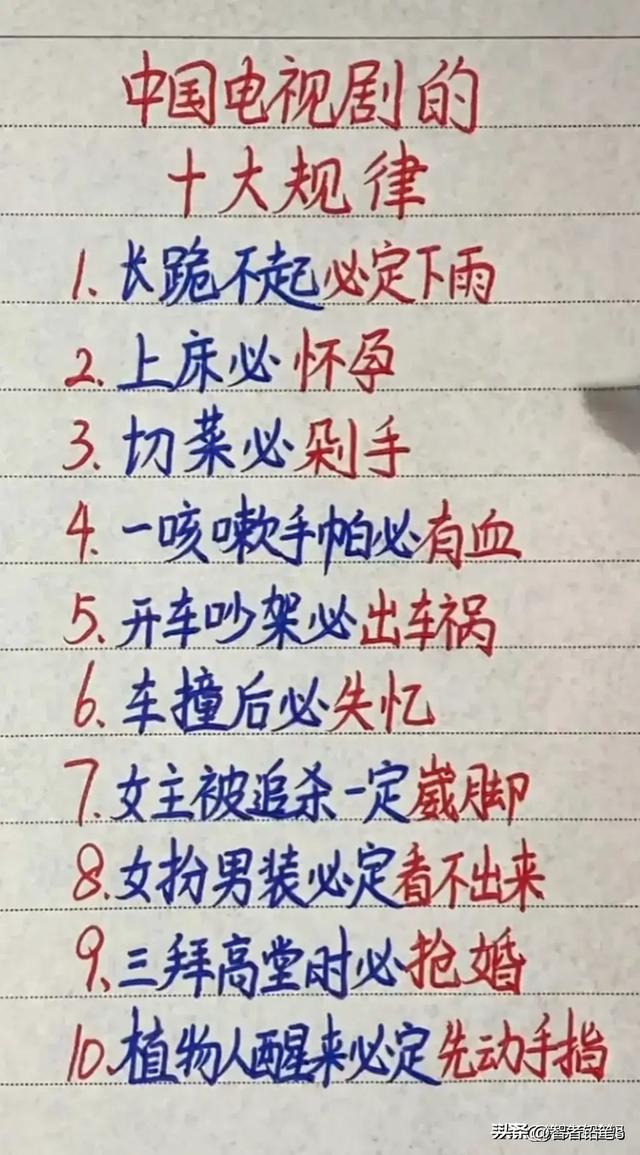 中国电视剧的
十大规律
1. 长跪不起必定下雨
2. 上床必怀孕
3. 切菜必剁手
4. 一咳嗽手帕必有血
5. 开车吵架必出车祸
6. 车撞后必失忆
7. 女主被追杀一定崴脚
8. 女扮男装必定看不出来
9. 三拜高堂时必抢婚
10. 植物人醒来必定先动手指
头条@智者铅笔